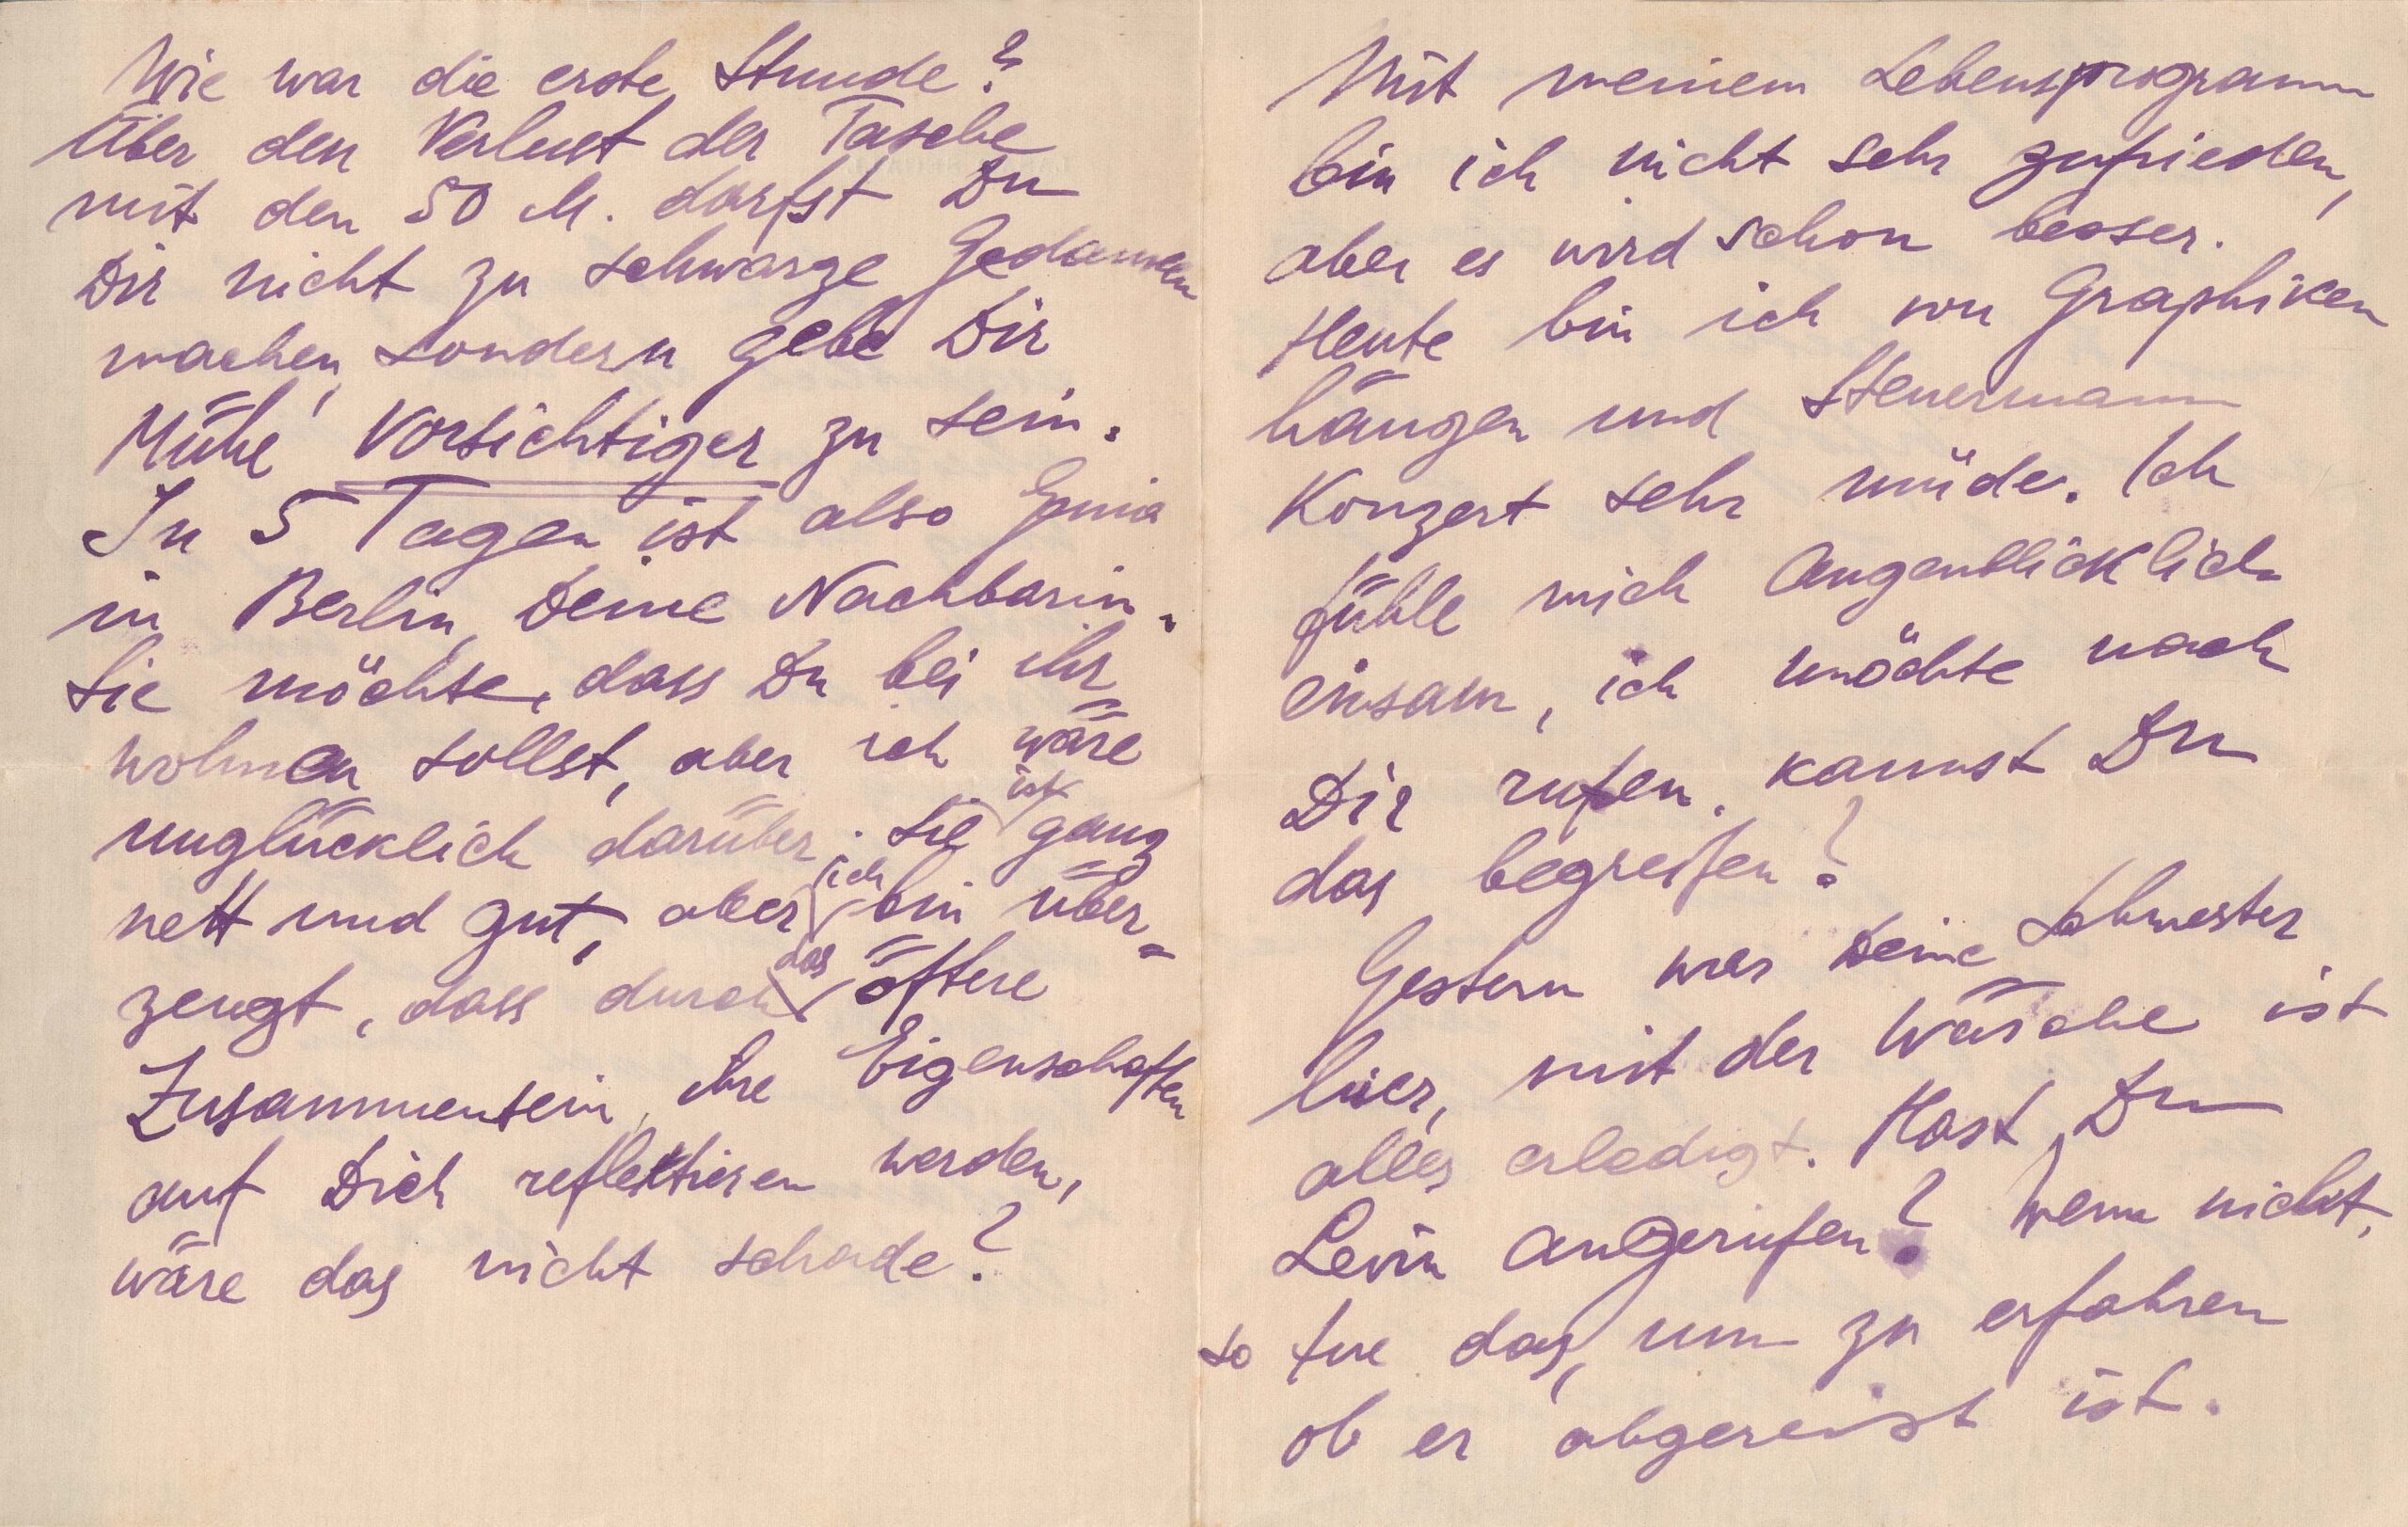 Wie war die erste Stunde?
Über den Verlust der Tasche
mit den 50 M. darfst Du
Dir nicht zu schwarze Gedanken
machen, sondern gebe Dir
Mühe vorsichtiger zu sein.
In 5 Tagen ist also Genia
in Berlin, Deine Nachbarin.
Sie möchte, dass Du bei ihr
wohnen sollst, aber ich wäre
unglücklich darüber. Sie ist ganz
nett und gut, aber ich bin über=
zeugt, dass durch das öftere
Zusammensein, ihre Eigenschaften
auf Dich reflektieren werden,
wäre das nicht schade?
Mit meinem Lebensprogramm
bin ich nicht sehr zufrieden,
aber es wird schon besser.
Heute bin ich von Graphiken
hängen und Steuermann
Konzert sehr müde. Ich
fühle mich augenblicklich
einsam, ich möchte nach
Dir rufen. kannst Du
das begreifen?
Gestern war Deine Schwester
hier, mit der Wäsche ist
alles erledigt. Hast Du
Levin angerufen? Wenn nicht,
so tue das, um zu erfahren
ob er abgereist ist.